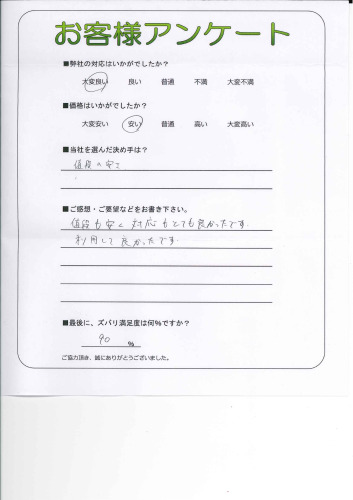 お客様アンケート
■弊社の対応はいかがでしたか?
大変良い 良い 普通 不満 大変不満
■価格はいかがでしたか?
大変安い 安い 普通 高い 大変高い
■当社を選んだ決め手は?
値段の安さ
■ご感想・ご要望などをお書き下さい。
値段も安く対応もとても良かったです。
利用して良かったです。
■最後に、ズバリ満足度は何%ですか?
90 %
ご協力頂き、誠にありがとうございました。